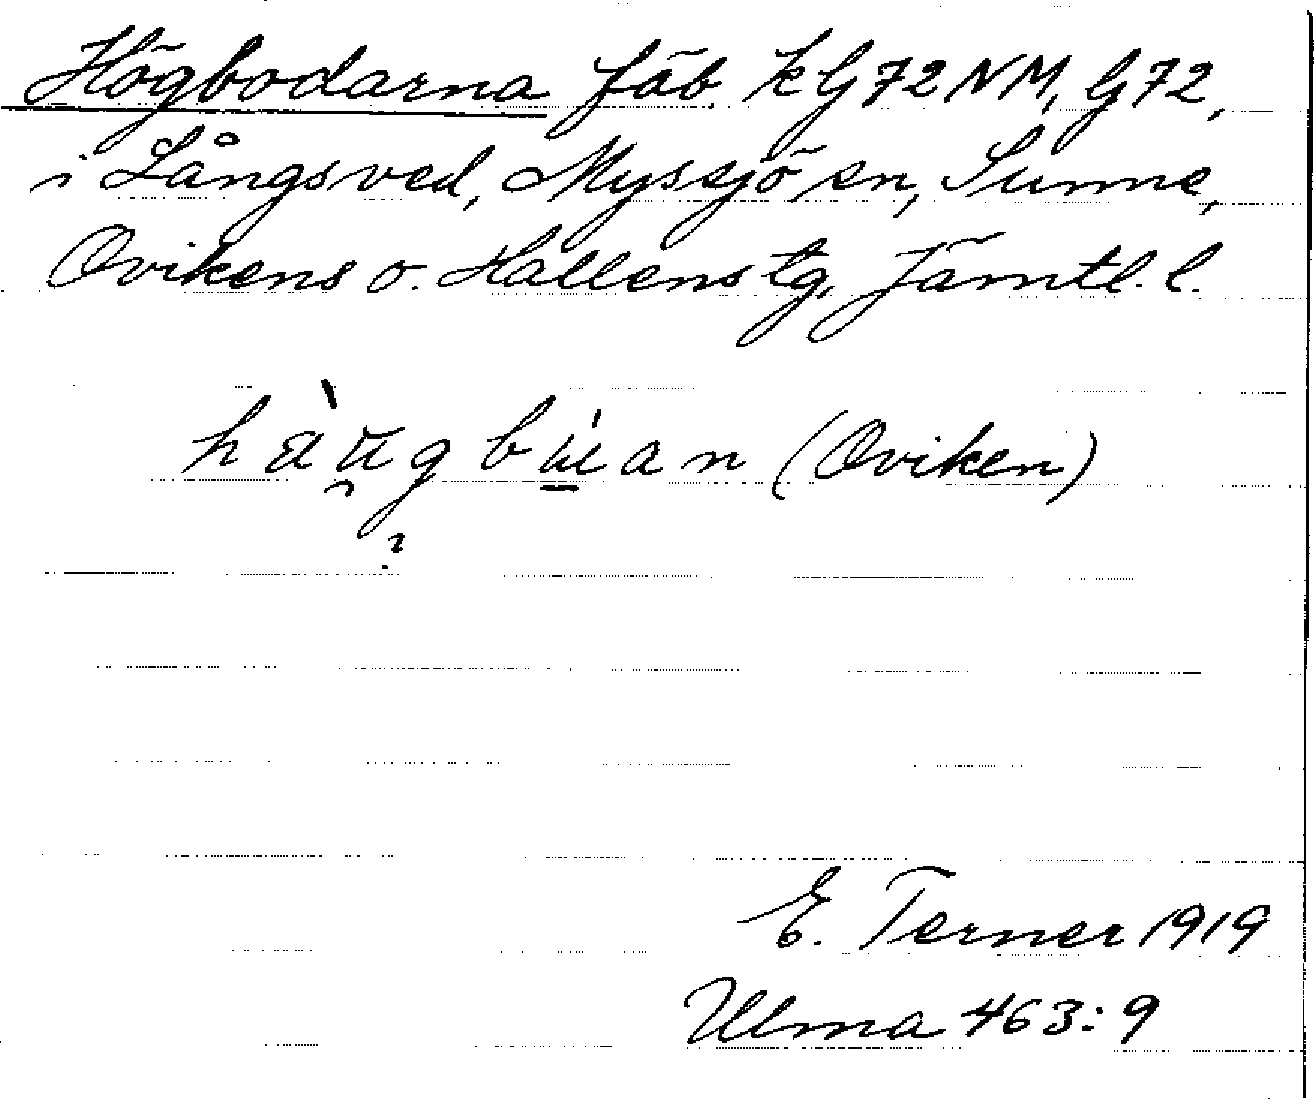 Högbodarna fäb. kG72NM, G72,
i Långsved, Myssjö sn, Sunne,
Ovikens o. Hallens tg, Jämtl. l.
(Oviken)
E. Terner 1919
Ulma 463:9